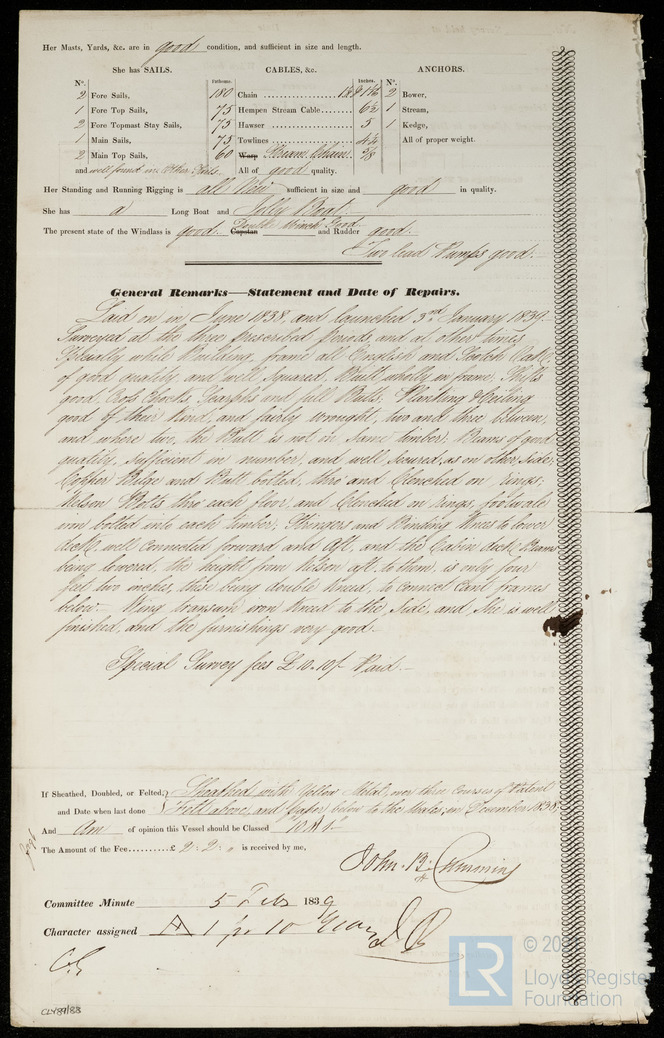 Her Masts, Yards, &c. are in good condition, and sufficient in size and length.
She has SAILS. CABLES, &c. ANCHORS.
N°. Fathoms. Inches. N°.
2 Fore Sails, 180 Chain 1 1/16 2 Bower,
1 Fore Top Sails, 75 Hempen Stream Cable 6½ 1 Stream,
2 Fore Topmast Stay Sails, 75 Hawser 5 1 Kedge,
1 Main Sails, 75 Towlines 4½ All of proper weight.
2 Main Top Sails, 60 Warp Stream Chain 5/8
and well found in other Sails All of good quality.
Her Standing and Running Rigging is all New sufficient in size and good in quality.
She has a Long Boat and Jolly Boat
The present state of the Windlass is good. Capstan Double Winch Good and Rudder good.
Two lead Pumps good.
General Remarks—Statement and Date of Repairs.
Laid on in June 1838, and launched 3rd January 1839.
Surveyed at the three prescribed periods and at other times
Specially while Building, frame all English and Scotch Oak
of good quality, and well Squared, Built wholly in frame, Shifts
good, Cross Chocks, Scarphs and full Butts. Planking & Ceiling
good of their kind, and fairly wrought, two and three between,
and where two, the Butt is not in same timber; Beams of good
quality, sufficient in number, and well secured, as on other side;
Copper Bilge and Butt bolted, thro and Clenched on rings;
Kelson Bolts thro each floor, and Clenched on rings, footwale
iron bolted into each timber; Stringers and Binding Knees to lower
deck, well connected forward and Aft, and the Cabin deck Beams
being lowered, the height from kelson aft, to them, is only four
feet two inches, this being double Kneed, to connect Cant frames
below— Wing transum iron Kneed to the Side, and She is well
finished, and the furnishings very good—
Special Survey fees £10.10/- Paid.—
If Sheathed, Doubled, or Felted, Sheathed with Yellow Metal, over three Courses of Patent
and Date when last done Felt above, and Paper below to the Wales, in December 1838,
And Am of opinion this Vessel should be Classed 10 A 1—
The Amount of the Fee £ 2 : 2 : 0 is received by me,
John B. Cumming
Committee Minute 5 Feb 1839
Character assigned A 1 for 10 Years
CLY89/83
LR
Lloyd's Register
Foundation